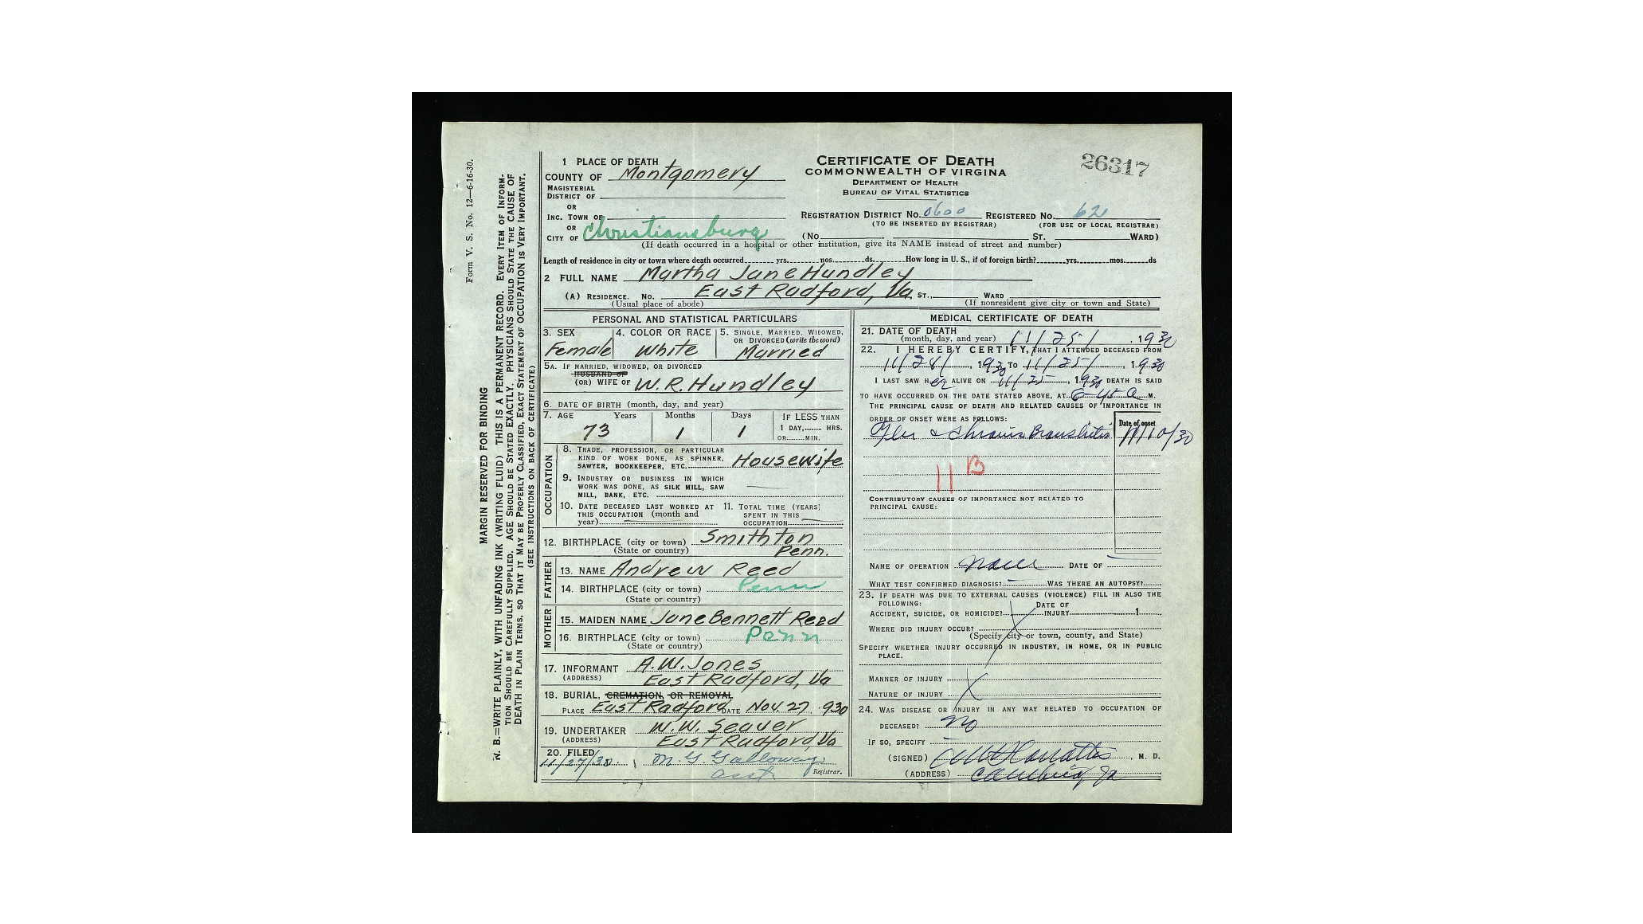 Form V. S. No. 12—6-16-30.
MARGIN RESERVED FOR BINDING
N. B.—WRITE PLAINLY, WITH UNFADING INK (WRITING FLUID) THIS IS A PERMANENT RECORD. EVERY ITEM OF INFORM-
TION SHOULD BE CAREFULLY SUPPLIED. AGE SHOULD BE STATED EXACTLY. PHYSICIANS SHOULD STATE THE CAUSE OF
DEATH IN PLAIN TERMS, SO THAT IT MAY BE PROPERLY CLASSIFIED, EXACT STATEMENT OF OCCUPATION IS VERY IMPORTANT.
(SEE INSTRUCTIONS ON BACK OF CERTIFICATE)
CERTIFICATE OF DEATH
COMMONWEALTH OF VIRGINIA
DEPARTMENT OF HEALTH
BUREAU OF VITAL STATISTICS
26317
1 PLACE OF DEATH
COUNTY OF Montgomery
MAGISTERIAL
DISTRICT OF
OR
INC. TOWN OF
OR
CITY OF Christiansburg
REGISTRATION DISTRICT NO. 0600 REGISTERED NO. 62
(TO BE INSERTED BY REGISTRAR) (FOR USE OF LOCAL REGISTRAR)
(No. ST. WARD)
(If death occurred in a hospital or other institution, give its NAME instead of street and number)
Length of residence in city or town where death occurred yrs. mos. ds. How long in U. S., if of foreign birth? yrs. mos. ds
2 FULL NAME Martha Jane Hundley
(A) RESIDENCE. No. East Radford, Va. ST., WARD
(Usual place of abode) (If nonresident give city or town and State)
PERSONAL AND STATISTICAL PARTICULARS
3. SEX 4. COLOR OR RACE 5. SINGLE, MARRIED, WIDOWED,
OR DIVORCED (write the word)
Female White Married
5A. IF MARRIED, WIDOWED, OR DIVORCED
HUSBAND OF
(OR) WIFE OF W. R. Hundley
6. DATE OF BIRTH (month, day, and year)
7. AGE Years Months Days IF LESS THAN
1 DAY, HRS.
OR MIN.
73 1 1
OCCUPATION
8. TRADE, PROFESSION, OR PARTICULAR
KIND OF WORK DONE, AS SPINNER,
SAWYER, BOOKKEEPER, ETC. Housewife
9. INDUSTRY OR BUSINESS IN WHICH
WORK WAS DONE, AS SILK MILL, SAW
MILL, BANK, ETC.
10. DATE DECEASED LAST WORKED AT
THIS OCCUPATION (month and
year)
11. TOTAL TIME (YEARS)
SPENT IN THIS
OCCUPATION
12. BIRTHPLACE (city or town) Smithton
(State or country) Penn.
FATHER
13. NAME Andrew Reed
14. BIRTHPLACE (city or town) Penn
(State or country)
MOTHER
15. MAIDEN NAME Jane Bennett Reed
16. BIRTHPLACE (city or town) Penn
(State or country)
17. INFORMANT A. W. Jones
(ADDRESS) East Radford, Va
18. BURIAL, CREMATION, OR REMOVAL
PLACE East Radford DATE Nov. 27 1930
19. UNDERTAKER W. W. Seaver
(ADDRESS) East Radford, Va
20. FILED
11/27/30 M. G. Galloway
Registrar.
MEDICAL CERTIFICATE OF DEATH
21. DATE OF DEATH
(month, day, and year) 11/25/ 1930
22. I HEREBY CERTIFY, THAT I ATTENDED DECEASED FROM
11/24/, 1930 TO 11/25/, 1930
I LAST SAW HER ALIVE ON 11/25, 1930 DEATH IS SAID
TO HAVE OCCURRED ON THE DATE STATED ABOVE, AT 6 45 a M.
THE PRINCIPAL CAUSE OF DEATH AND RELATED CAUSES OF IMPORTANCE IN
ORDER OF ONSET WERE AS FOLLOWS:
Date of onset
11 B
CONTRIBUTORY CAUSES OF IMPORTANCE NOT RELATED TO
PRINCIPAL CAUSE:
NAME OF OPERATION None DATE OF
WHAT TEST CONFIRMED DIAGNOSIS? WAS THERE AN AUTOPSY?
23. IF DEATH WAS DUE TO EXTERNAL CAUSES (VIOLENCE) FILL IN ALSO THE
FOLLOWING:
ACCIDENT, SUICIDE, OR HOMICIDE? DATE OF
INJURY 1
WHERE DID INJURY OCCUR?
(Specify city or town, county, and State)
SPECIFY WHETHER INJURY OCCURRED IN INDUSTRY, IN HOME, OR IN PUBLIC
PLACE.
MANNER OF INJURY
NATURE OF INJURY
24. WAS DISEASE OR INJURY IN ANY WAY RELATED TO OCCUPATION OF
DECEASED? No
IF SO, SPECIFY
(SIGNED) , M. D.
(ADDRESS)